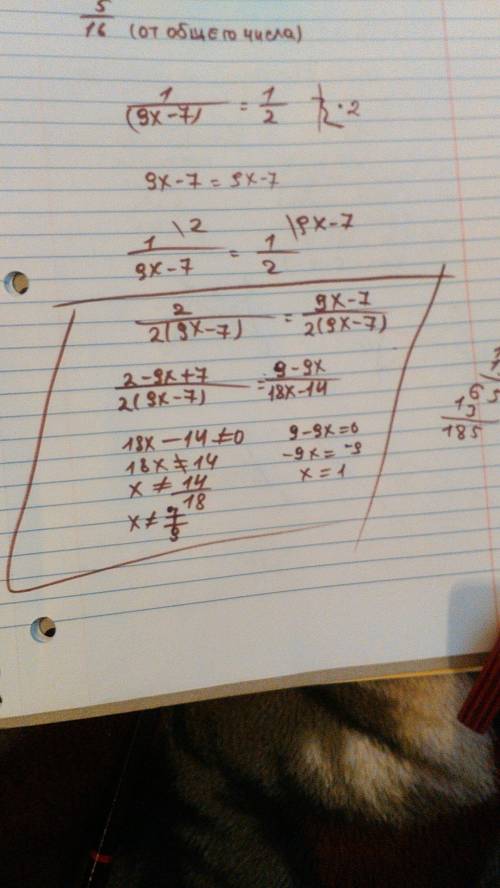 5/16 (от общего числа)
1/(9x-7) = 1/2 | · 2
9x-7 = 9x-7
1\2/9x-7 = 1\9x-7/2
2/2(9x-7) = 9x-7/2(9x-7)
2-9x+7/2(9x-7) = 9-9x/18x-14
18x-14≠0 9-9x=0
18x≠14 -9x=-9
x≠14/18 x=1
x≠7/9
185